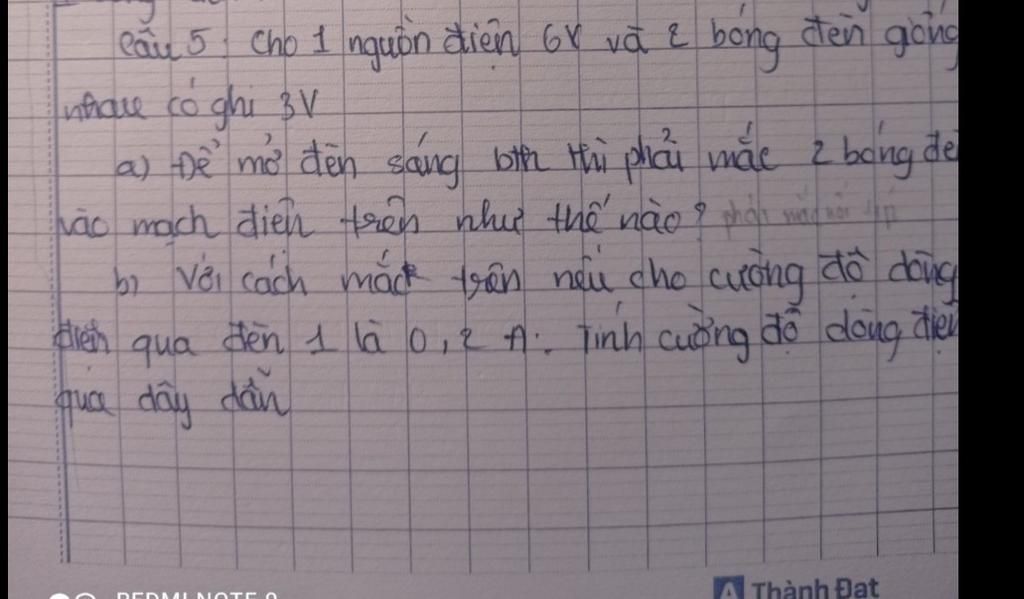 Câu 5: Cho 1 nguồn điện 6V và 2 bóng đèn giống
nhau có ghi 3V
a) Để mở đèn sáng bth thì phải mắc 2 bóng đè
vào mạch điện trên như thế nào? phải mắc nối tiếp
b) Với cách mắc trên nếu cho cường độ dòng
điện qua đèn 1 là 0,2 A. Tính cường độ dòng điện
qua dây dẫn
REDMI NOTE 9
A Thành Đạt